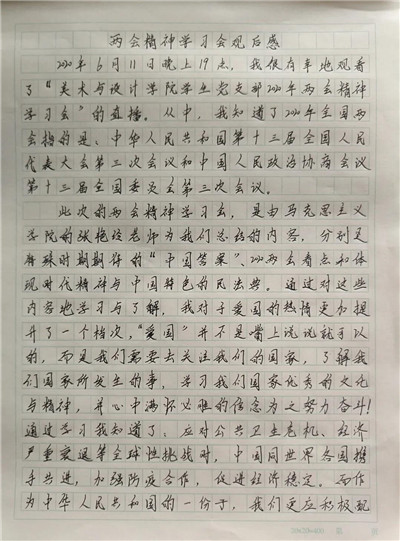 两会精神学习会观后感
2020年6月11日晚上19点，我很有幸地观看
了“美术与设计学院学生党支部2020年两会精神
学习会”的直播。从中，我知道了2020年全国两
会指的是、中华人民共和国第十三届全国人民
代表大会第三次会议和中国人民政治协商会议
第十三届全国委员会第三次会议。
此次的两会精神学习会，是由马克思主义
学院的张艳玲老师为我们总结的内容，分别是
特殊时期期待的“中国答案”、2020两会看点和体
现时代精神与中国特色的民法典。通过对这些
内容地学习与了解，我对于爱国的热情更加提
升了一个档次，“爱国”并不是嘴上说说就可以
的，而是我们需要去关注我们的国家，了解我
们国家所发生的事，学习我们国家优秀的文化
与精神，并心中满怀必胜的信念为之努力奋斗！
通过学习我知道了：应对公共卫生危机、经济
严重衰退等全球性挑战时，中国同世界各国携
手共进，加强防疫合作，促进经济稳定。而作
为中华人民共和国的一份子，我们更应积极配